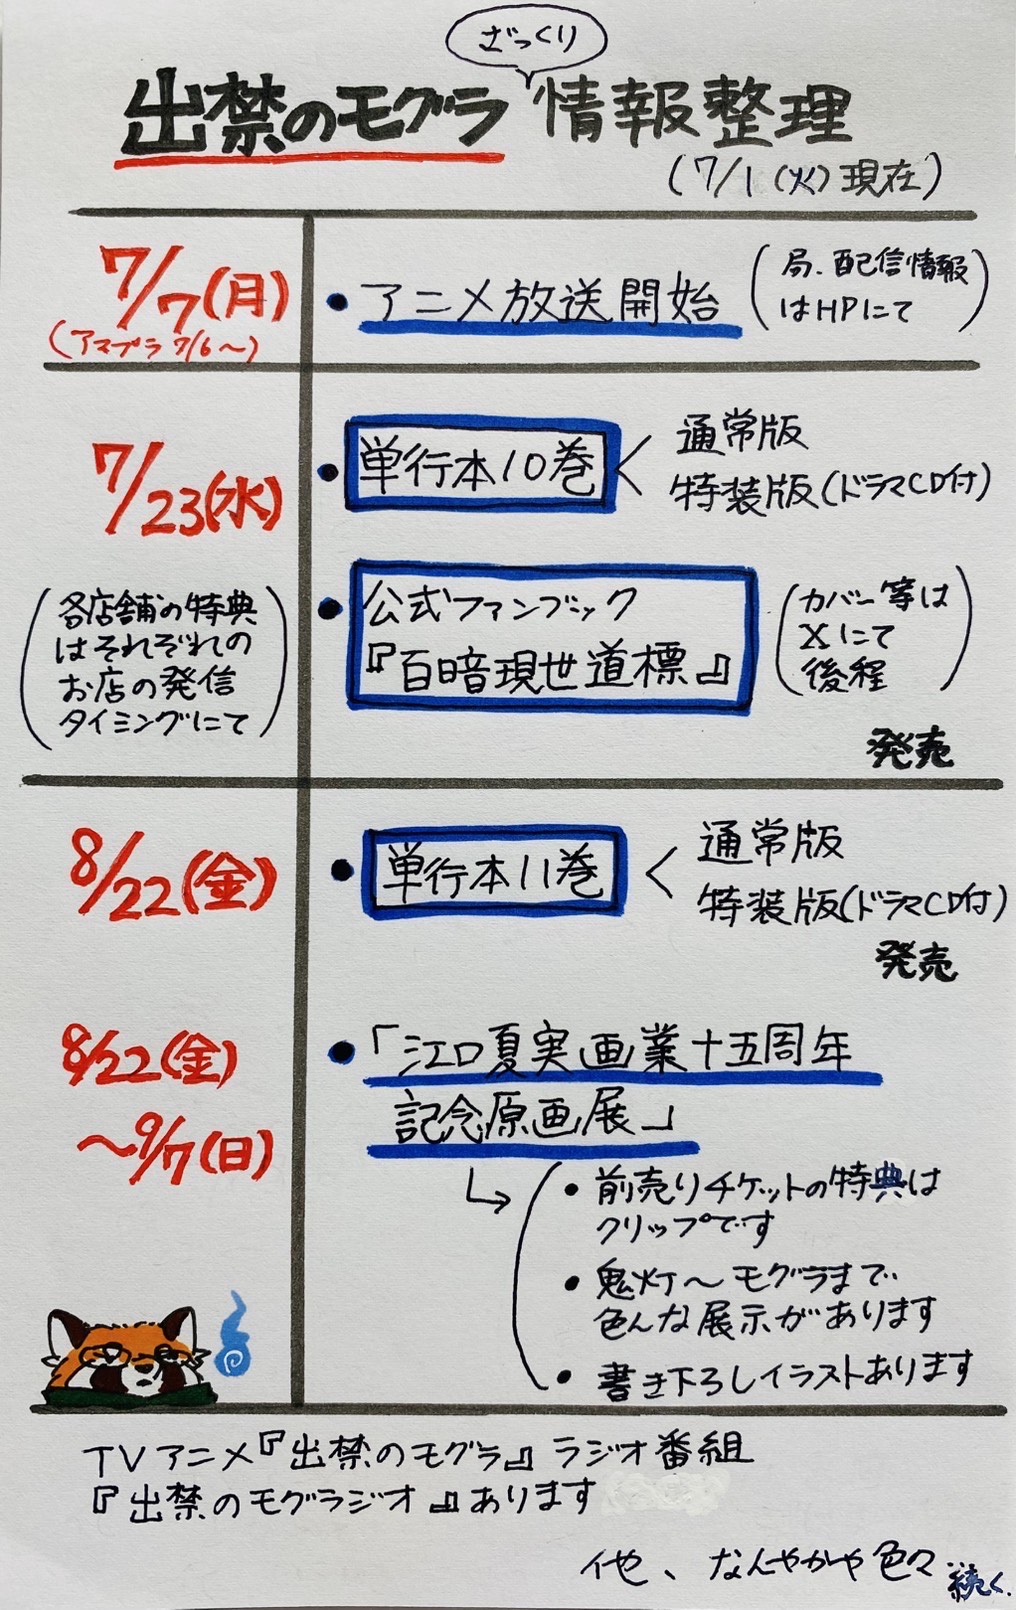 ざっくり
出禁のモグラ 情報整理
(7/1(火)現在)
7/7(月)
(アマプラ 7/6〜)
・アニメ放送開始
(局、配信情報
はHPにて)
7/23(水)
(各店舗の特典
はそれぞれの
お店の発信
タイミングにて)
・単行本10巻
通常版
特装版(ドラマCD付)
・公式ファンブック
『百暗現世道標』
(カバー等は
Xにて
後程)
発売
8/22(金)
・単行本11巻
通常版
特装版(ドラマCD付)
発売
8/22(金)
〜9/7(日)
・「江口夏実画業十五周年
記念原画展」
・前売りチケットの特典は
クリップです
・鬼灯〜モグラまで
色んな展示があります
・書き下ろしイラストあります
TVアニメ『出禁のモグラ』ラジオ番組
『出禁のモグラジオ』あります
他、なんやかや色々
続く.